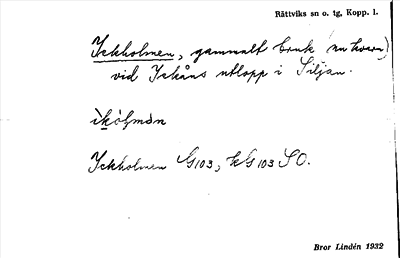 Rättviks sn o. tg, Kopp. l.
Ickholmen, gammalt bruk (nu kvarn)
vid Ickåns utlopp i Siljan.
ìkòḷmǝn
Ickholmen G103, kG 103 SO.
Bror Lindén 1932